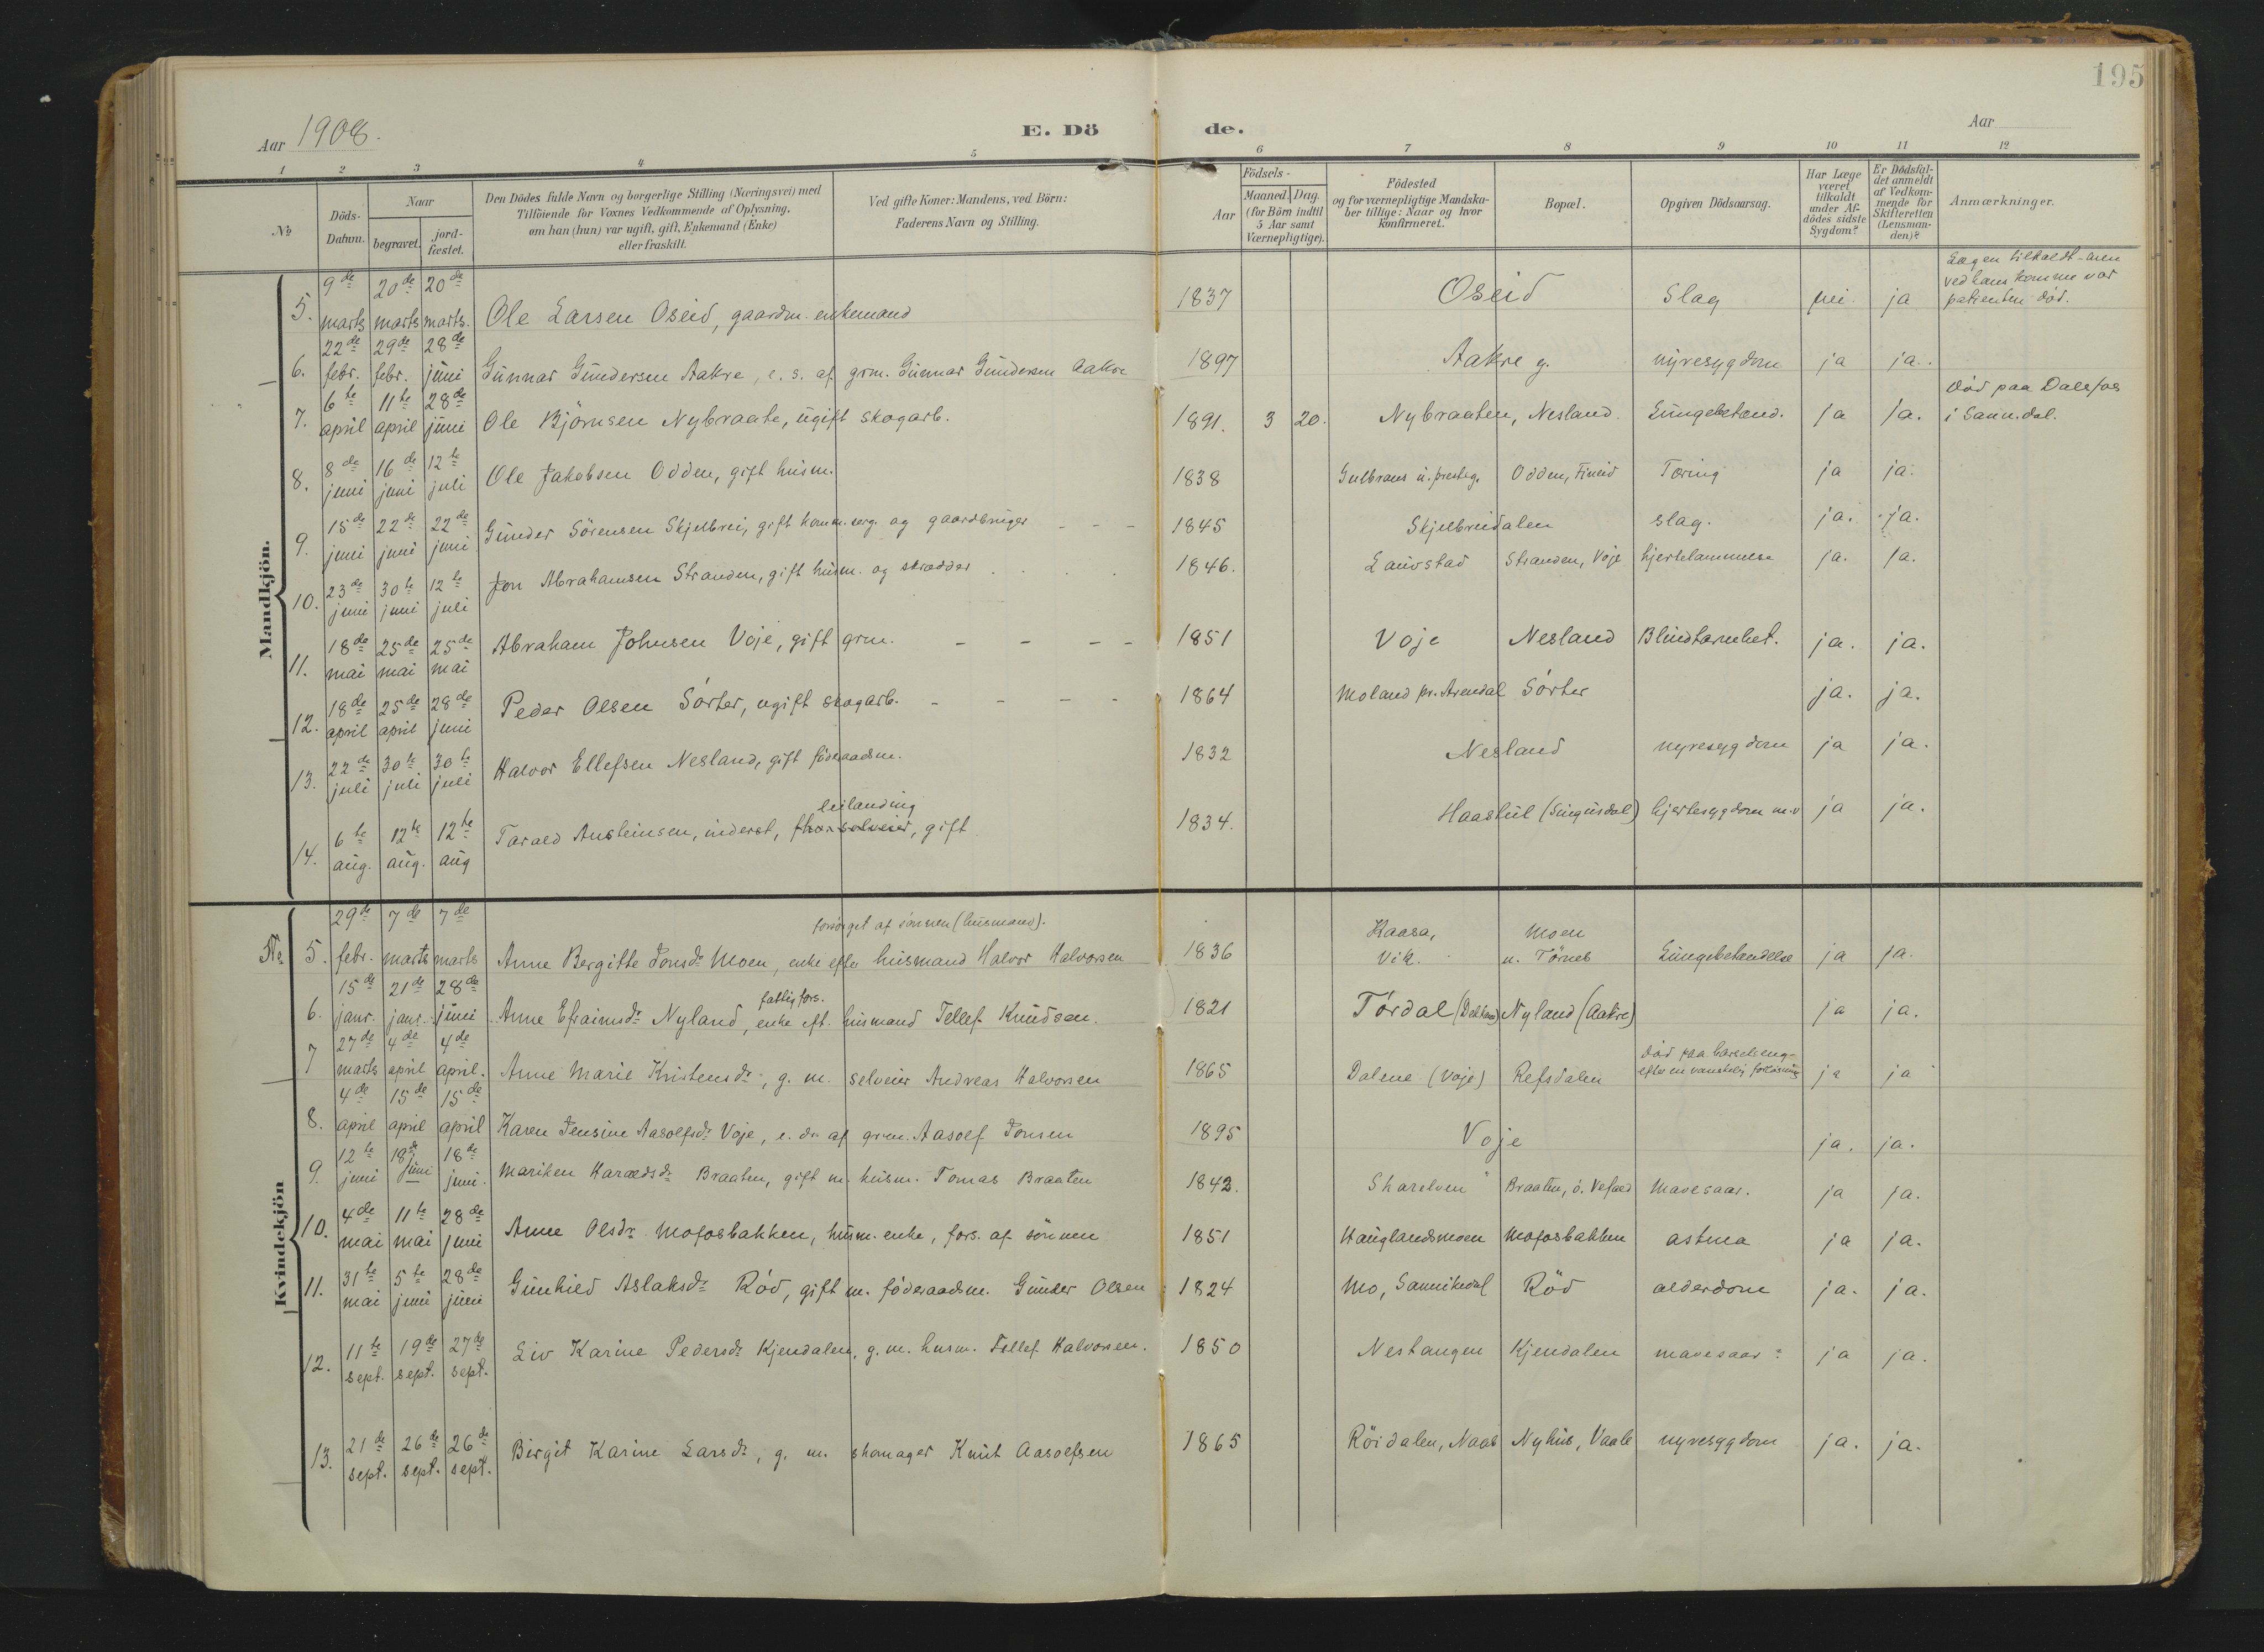 195
Aar 1908.
E. Dö de.
Aar
1 2 3 4 5 6 7 8 9 10 11 12
No
Döds-Datum.
Naar
begravet.
jord-fæstet.
Den Dödes fulde Navn og borgerlige Stilling (Næringsvei) med
Tilföiende for Voxnes Vedkommende af Oplysning,
om han (hun) var ugift, gift, Enkemand (Enke)
eller fraskilt.
Ved gifte Koner: Mandens, ved Börn:
Faderens Navn og Stilling.
Födsels-
Aar
Maaned. Dag.
(for Börn indtil
5 Aar samt
Værnepligtige).
Födested
og for værnepligtige Mandska-
ber tillige: Naar og hvor
konfirmeret.
Bopæl.
Opgiven Dödsaarsag.
Har Læge
været
tilkaldt
under Af-
dödes sidste
Sygdom?
Er Dödsfal-
det anmeldt
af Vedkom-
mende for
Skifteretten
(Lensman-
den)?
Anmærkninger.
Mandkjön.
5. 9de marts 20de marts 20de marts. Ole Larsen Oseid, gaardm. enkemand 1837 Oseid Slag nei. ja Lægen tilkaldt - men
ved hans komme var
patienten död.
6. 22de febr. 29de febr. 28de juni Gunnar Gundersen Aakre, e. s. af grm. Gunnar Gundersen Aakre 1897 Aakre g. nyresygdom ja ja.
7. 6te april 11te april 28de juni Ole Björnsen Nybraate, ugift skogarb. 1891. 3 20. Nybraaten, Nesland. Lungebetænd. ja ja. död paa Dalsfos
i Sann.dal.
8. 8de juni 16de juni 12te juli Ole Jakobsen Odden, gift husm. 1838 Gulbrans u. presteg. Odden, Fineid Tæring ja ja.
9. 15de juni 22de juni 22de juni Gunder Sörensen Skjelbrei, gift kom.serg. og gaardbruger - - - 1845 Skjelbreidalen slag. ja. ja.
10. 23de juni 30te juni 12te juli Jon Abrahamsen Stranden, gift husm. og skrædder 1846. Lauvstad Stranden, Voje hjertelammelse ja. ja.
11. 18de mai 25de mai 25de mai Abraham Johnsen Voje, gift grm. - - - - 1851 Voje Nesland Blindtarmbet. ja. ja.
12. 18de april 25de april 28de juni Peder Olsen Sörter, ugift skogarb. - - - - 1864 Moland pr. Arendal Sörter ja. ja.
13. 22de juli 30te juli 30te juli Halvor Ellefsen Nesland, gift föderaadsm. 1832 Nesland nyresygdom ja ja.
leilanding
14. 6te aug. 12te aug. 12te aug Tarald Austeinsen, inderst, selveier, gift 1834. Haastul (Singusdal) hjertesygdom m.v ja ja.
Kvindekjön
No
forsörget af sönnen (husmand).
5. 29de febr. 7de marts 7de marts Anne Bergitte Jonsdr. Moen, enke efter husmand Halvor Halvorsen 1836 Kaasa, Vik. Moen u. Törnes Lungebetændelse ja ja.
fattigfors.
6. 15de janr. 21de janr. 28de juni Anne Efraimsdr. Nyland, enke eft. husmand Tellef Knudsen. 1821 Tördal Nyland (Aakre) ja ja.
7 27de marts 4de april 4de april. Anne Marie Kristensdr., g. m. selveier Andreas Halvorsen 1865 Dalene (Voje) Refsdalen död paa barselseng
efter en vanskelig forlösning ja ja
8. 4de april 15de april 15de april Karen Jensine Aasolfsdr. Voje, e. dr. af grm. Aasolf Jonsen 1895 Voje ja. ja.
9. 12te juni 18de juni 18de juni. Mariken Haraldsdr. Braaten, gift m. husm. Tomas Braaten 1842. Skarelven Braaten, ö. Vefald Mavesaar. ja ja.
10. 4de mai 11te mai 28de juni Anne Olsdr. Mofosbakken, husm. enke, fors. af sönnen 1851 Hauglandsmoen Mofosbakken astma ja ja.
11. 31te mai 5te juni 28de juni Gunhild Aslaksdr. Röd, gift m. föderaadsm. Gunder Olsen 1824 Mo, Sannikedal Röd alderdom ja. ja.
12. 11te sept. 19de sept. 27de sept. Liv Karine Pedersdr. Kjendalen, g. m. husm. Tellef Halvorsen. 1850 Nestangen Kjendalen mavesaar? ja ja.
13. 21de sept. 26de sept. 26de sept. Birgit Karine Larsdr., g. m. skomager Knut Aasolfsen 1865 Röidalen, Naas Nyhus, Vaale nyresygdom ja. ja.